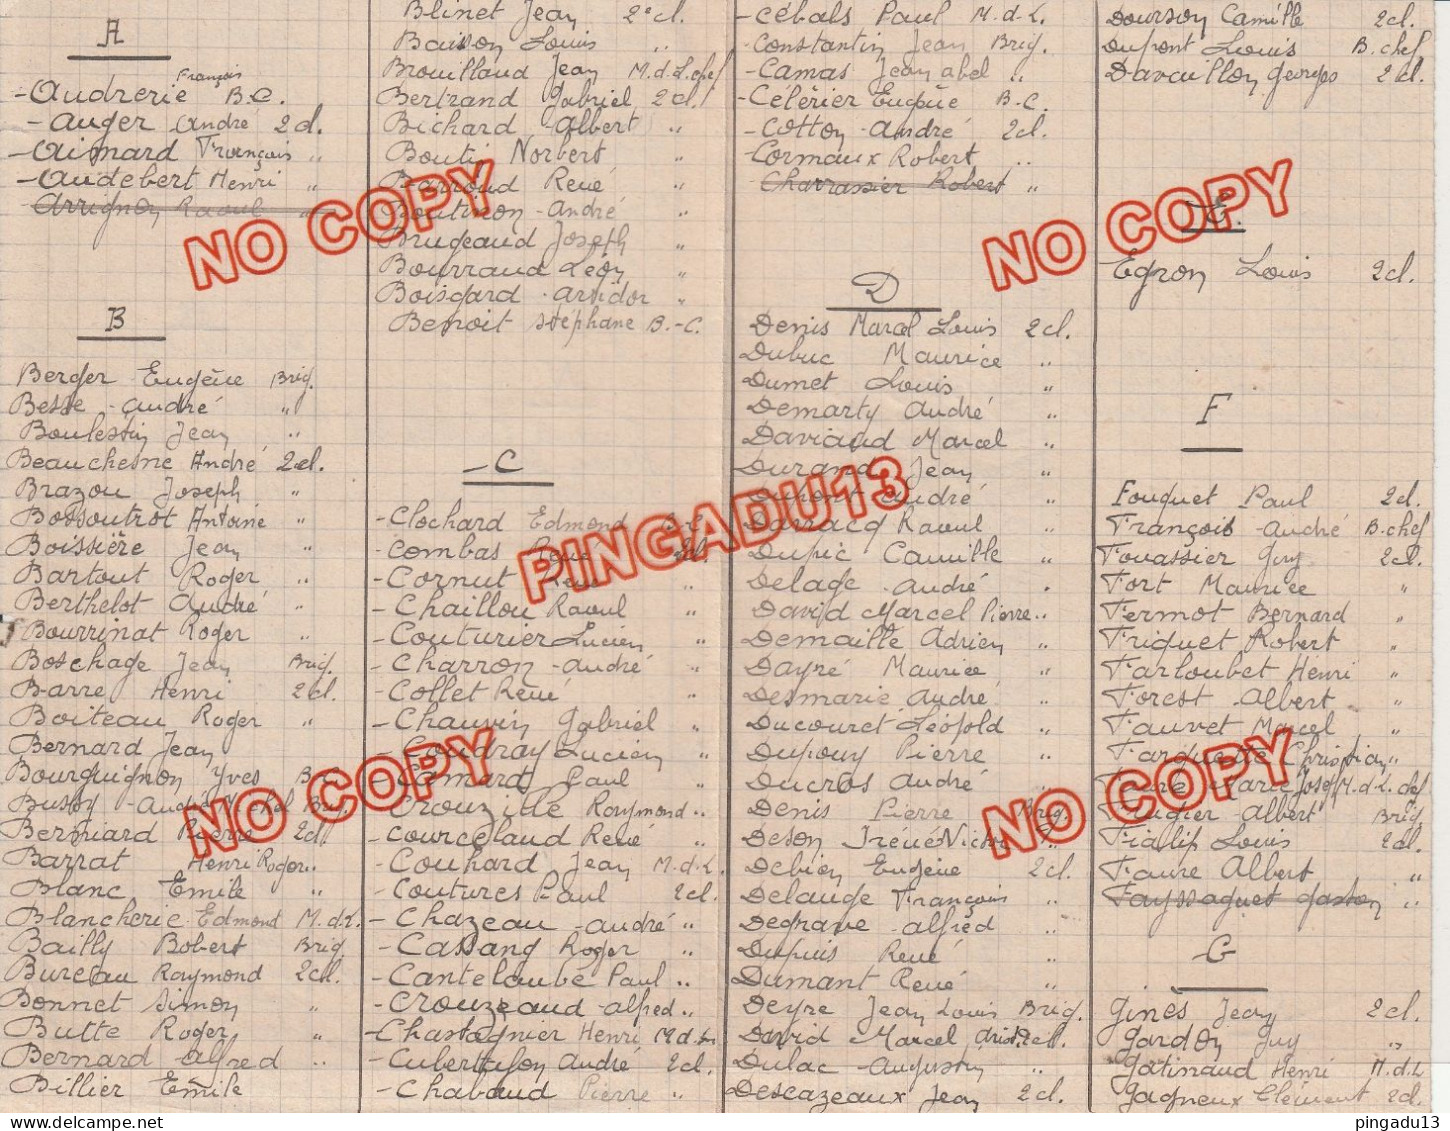 A
-Audrerie François B.C.
-Auger André 2cl.
-Aimard François "
-Audebert Henri "
Arrignon Raoul "
B
Berger Eugène Brig.
Besse André "
Boulestin Jean "
Beauchesne André 2cl.
Brazou Joseph "
Bossoutrot Antoine "
Boissière Jean "
Bartout Roger "
Berthelot André "
Bourrinat Roger "
Boschage Jean Brig.
Barre Henri 2cl.
Boiteau Roger "
Bernard Jean
Bourguignon Yves B.C.
Bussy André Michel Brig.
Bermiard Pierre 2cl.
Barrat Henri Roger "
Blanc Emile "
Blancherie Edmond M.d.L.
Bailly Bobert Brig
Bureau Raymond 2cl.
Bonnet Simon "
Butte Roger "
Bernard Alfred "
Billier Emile
Blinet Jean 2e cl.
Baison Louis "
Brouillaud Jean M.d.L.chef
Bertrand Gabriel 2cl.
Bichard Albert "
Boutin Norbert "
Barroud René "
Boutinon André "
Brugeaud Joseph "
Bourraud Léon "
Boisgard Aridor "
Benoit Stéphane B.-C.
-C
-Clochard Edmond B-C
-Combas René 2cl.
-Cornut René
-Chaillou Raoul "
-Couturier Lucien "
-Charron André "
-Collet René "
-Chauvin Gabriel "
-Coudray Lucien "
-Camard Paul "
-Crouzille Raymond "
-Courcelaud René "
-Couhard Jean M.d.L
-Coutures Paul 2cl.
-Chazeau André "
-Cassang Roger "
-Cantelaube Paul "
-Crouzeaud Alfred "
-Chastagnier Henri M.d.L.
-Cubertafon André 2cl.
-Chabaud Pierre "
-Cébals Paul M.d.L.
-Constantin Jean Brig.
-Camas Jean abel "
-Célérier Eugène B-C.
-Cotton André 2cl.
-Cormaux Robert "
-Charrassier Robert "
D
Denis Marcel Louis 2cl.
Dubuc Maurice "
Dumet Louis "
Demarty André "
Daviaud Marcel "
Durand Jean "
Dupont André "
Darracq Raoul "
Dupic Camille "
Delage André "
David Marcel Pierre "
Demaille Adrien "
Dayré Maurice "
Desmarie André "
Ducouret Léopold "
Dupouy Pierre "
Ducros André "
Denis Pierre Brig.
Deson Irénée Victor "
Debien Eugène 2cl.
Delauge François "
Degrave Alfred "
Dupuis René "
Dumant René "
Deyre Jean Louis Brig.
David Marcel 2cl.
Dulac Augustin "
Descazeaux Jean 2cl.
Dourson Camille 2cl.
Dupont Louis B.chef
Davaillon Georges 2cl.
E.
Egron Louis 2cl.
F
Fouquet Paul 2cl.
François André B.chef
Fouassier Guy 2cl.
Fort Maurice "
Fermot Bernard "
Friquet Robert "
Farloubet Henri "
Forest Albert "
Fauvet Marcel "
Farguette Christian "
Marie Josef M.d.L.chef
Albert Brig
Fialip Louis 2cl.
Faure Albert "
Fayssaguet Gaston "
G
Ginès Jean 2cl.
Gardon Guy "
Gatinaud Henri M.d.L
Gagneux Clément 2cl.
NO COPY
NO COPY
PINGADU13
NO COPY
NO COPY
delcampe.net
pingadu13